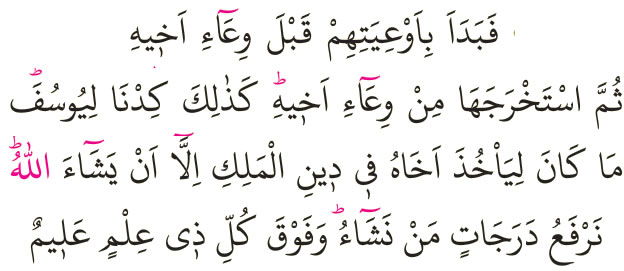 فَبَدَاَ بِاَوْعِيَتِهِمْ قَبْلَ وِعَٓاءِ اَخ۪يهِ
ثُمَّ اسْتَخْرَجَهَا مِنْ وِعَٓاءِ اَخ۪يهِۜ كَذٰلِكَ كِدْنَا لِيُوسُفَۜ
مَا كَانَ لِيَأْخُذَ اَخَاهُ ف۪ي د۪ينِ الْمَلِكِ اِلَّٓا اَنْ يَشَٓاءَ اللّٰهُۜ
نَرْفَعُ دَرَجَاتٍ مَنْ نَشَٓاءُۜ وَفَوْقَ كُلِّ ذ۪ي عِلْمٍ عَل۪يمٌ